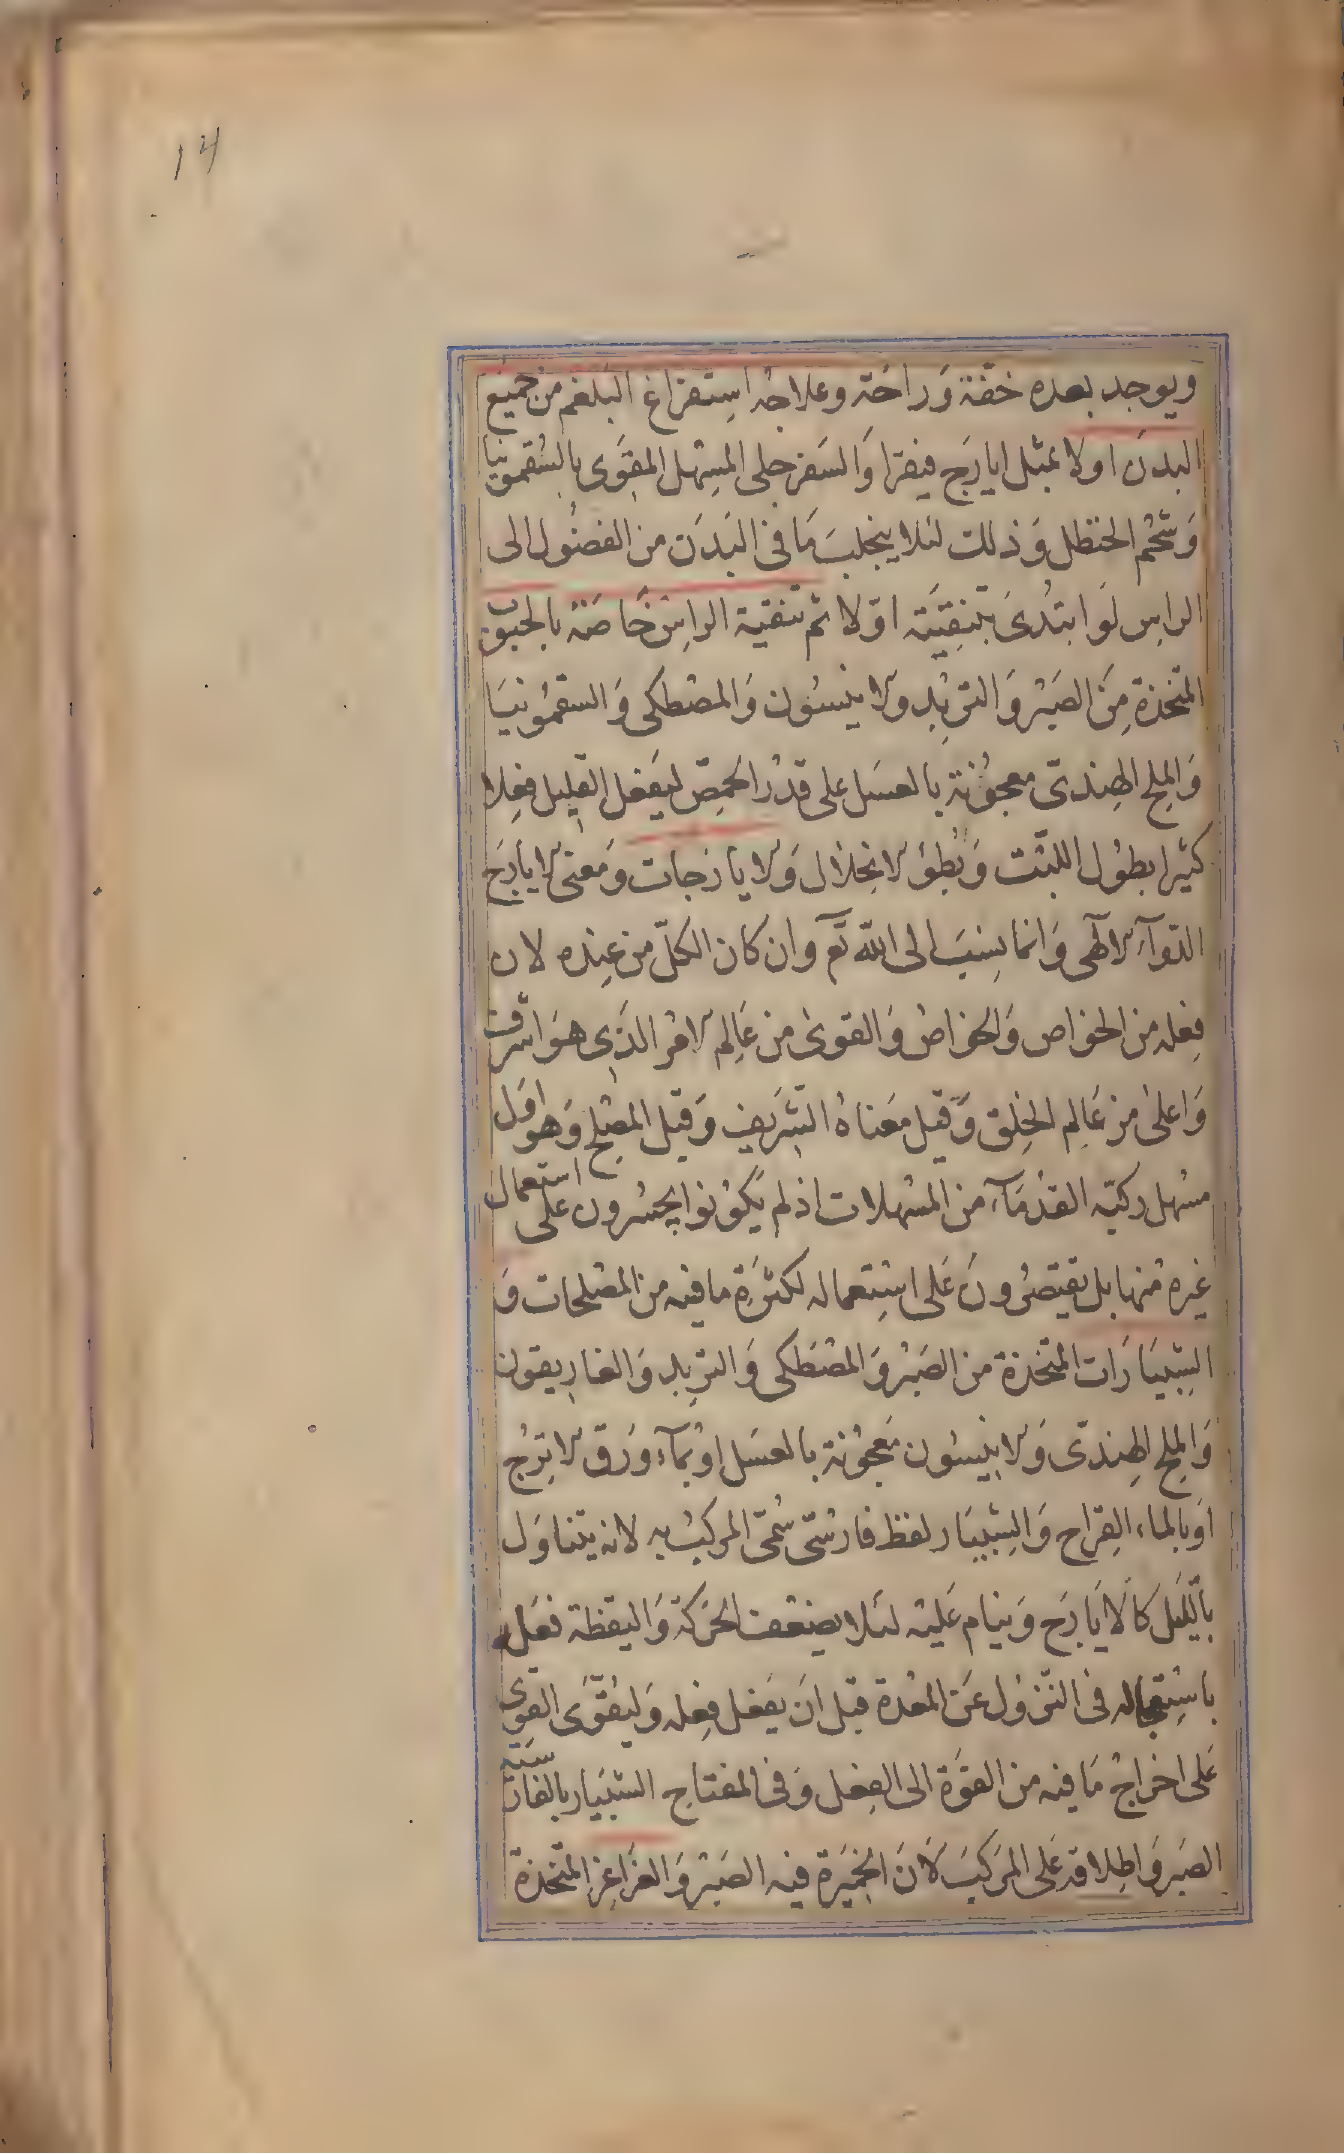 14
ويوجد بعده خفّة وَراحَة وعلاجُه اِستفراغ البَلغم من جميع
البدَن اولا بمثل ايارَج فيقرا وَالسَفرجلى المسْهل المقوَى بالسَقمونيا
وَشحْم الحنظل وَذلك لئلا ينجلبَ مَا فى البَدَن من الفضُول الى
الراس لَو ابتدُئَ بتنقِيَته اوّلا ثم تنقية الراس خَاصَة بالحبوب
المتخذة مِنَ الصَبْر وَالتربُد والانيسُون وَالمصْطكى وَالسقمُونيَا
وَالملح الهِندىّ معجوُنة بالعسَل على قدْر الحمصّ ليَفعل القليل فعِلا
كثيرا بطوُل اللبْث وَبُطؤ الانحِلال وَالايارَجات وَمَعنى الايارَج
الدّوآء الالهى وَانما نسِبَ الى اللّه تَعَ وان كان الكلّ من عِنده لان
فِعله من الخواص وَالخواصُ وَالقوىٰ من عَالم الامْر الذَى هوَ اشرف
وَاعلىٰ من عَالم الخلِق وَقيل مَعناهُ الشَريف وَقيل المصْلح وَهو اوَل
مسْهل ركبّه القدُمَآء من المسْهلات اذ لم يَكوُنوا يجسُرون على استعمال
غيره مْنها بل يقتصُرونَ عَلى استِعماله لكثَرة ما فيه من المصْلحات وَ
الشِبيَارَات المتّخذة من الصَبْر وَالمصْطكى وَالتربِد وَالغاريقون
وَالملح الهِندىّ وَالانيسُون مَعجوُنة بالعسَل اوْ بمآء وَرَق الاترُج
اوَ بالماء القِراح وَالشِبيَار لفظ فارسّى سُمّى المركبُ به لانه يتناوَل
بالّليَل كاَلايَارَج وَينام عَليْه لئلا يضعف الحَركة وَاليقظة فعَله
باستِعجاله فى النّزوُل عَن المعْدة قبل انَ يفعَل فِعله وَليقْوَى القوّى
عَلى اخراجْ مَا فيه من القوَّة الى الفِعل وَفى المفتاح الشبَيَار بالفارسَية
الصَبَر وَاطِلاقه عَلى المرَكبَ لاَنَ الخمِيَرة فيه الصَبْر وَالغَراغِر المتّخذة